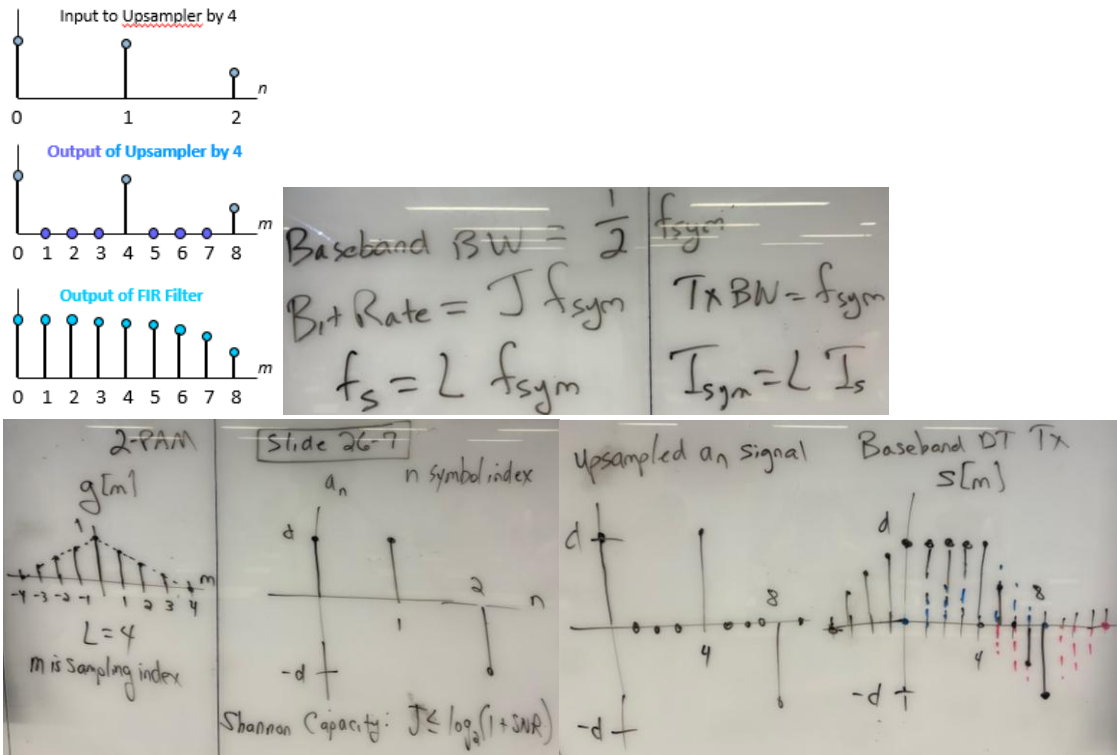 Input to Upsampler by 4
n
0 1 2
Output of Upsampler by 4
m
0 1 2 3 4 5 6 7 8
Output of FIR Filter
m
0 1 2 3 4 5 6 7 8
Baseband BW = 1/2 fsym
Bit Rate = J fsym
fs = L fsym
Tx BW = fsym
Tsym = L Ts
2-PAM
g[m]
1
m
-4 -3 -2 -1 1 2 3 4
L=4
m is sampling index
Slide 26-7
an
n symbol index
d
2
n
1
-d
Shannon Capacity: J ≤ log2(1+SNR)
Upsampled an signal
d
8
4
-d
Baseband DT Tx
s[m]
d
8
4
-d